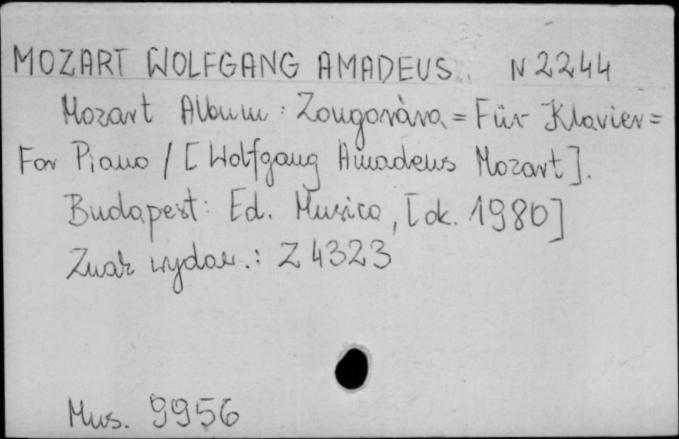 MOZART WOLFGANG AMADEUS. N 2244
Mozart Album : Zongoràra = Für Klavier =
For Piano / [Wolfgang Amadeus Mozart].
Budapest : Ed. Musica, [ok. 1980]
Znak wydaw.: Z 4323
Mus. 9956